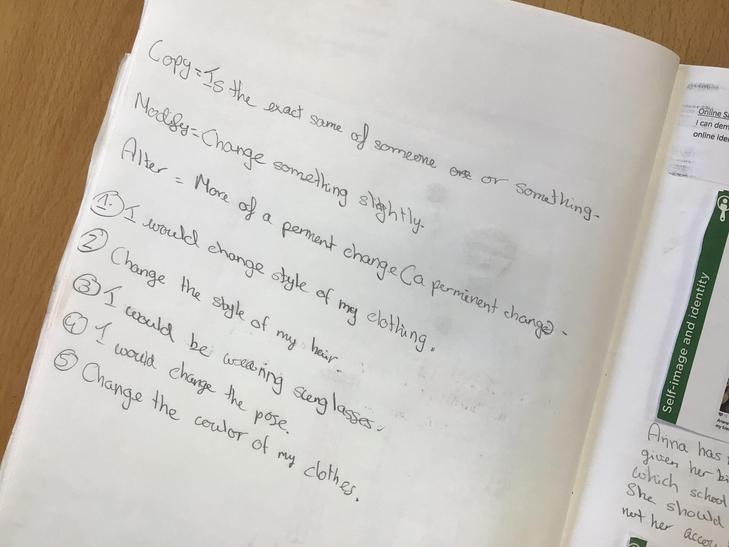 Copy = Is the exact same of someone or something.
Modify = Change something slightly.
Alter = More of a perment change (a perminent change).
1. I would change style of my clothing.
2 Change the style of my hair.
3 I would be wearing sunglasses.
4 I would change the pose.
5 Change the coulor of my clothes.
Online Sa
I can dem
online iden
Self-image and identity
Anna has
given her bi
which school
She should
not her accou